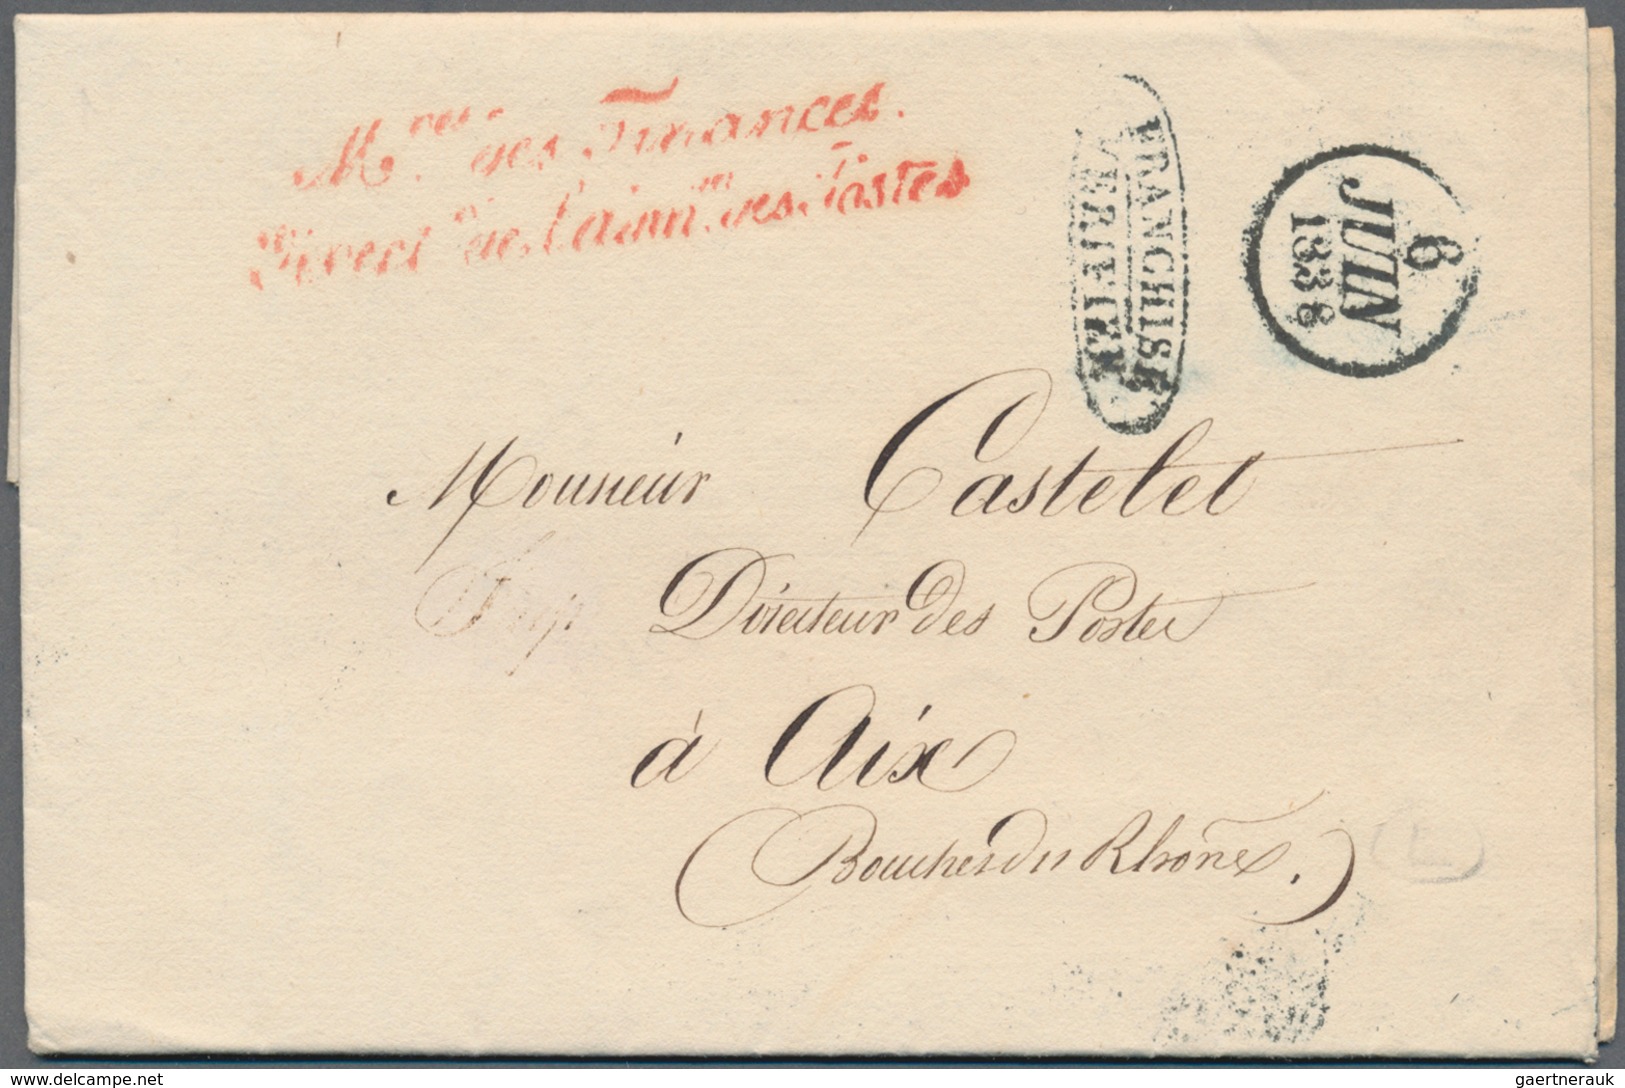 Mère des Finances.
Direct. de l'admon des Postes
FRANCHISE
VÉRIFIÉE
6
JUIN
1838
Monsieur Castelet
Directeur des Postes
à Aix
(Bouches du Rhône.)
www.delcampe.net
gaertnerauk